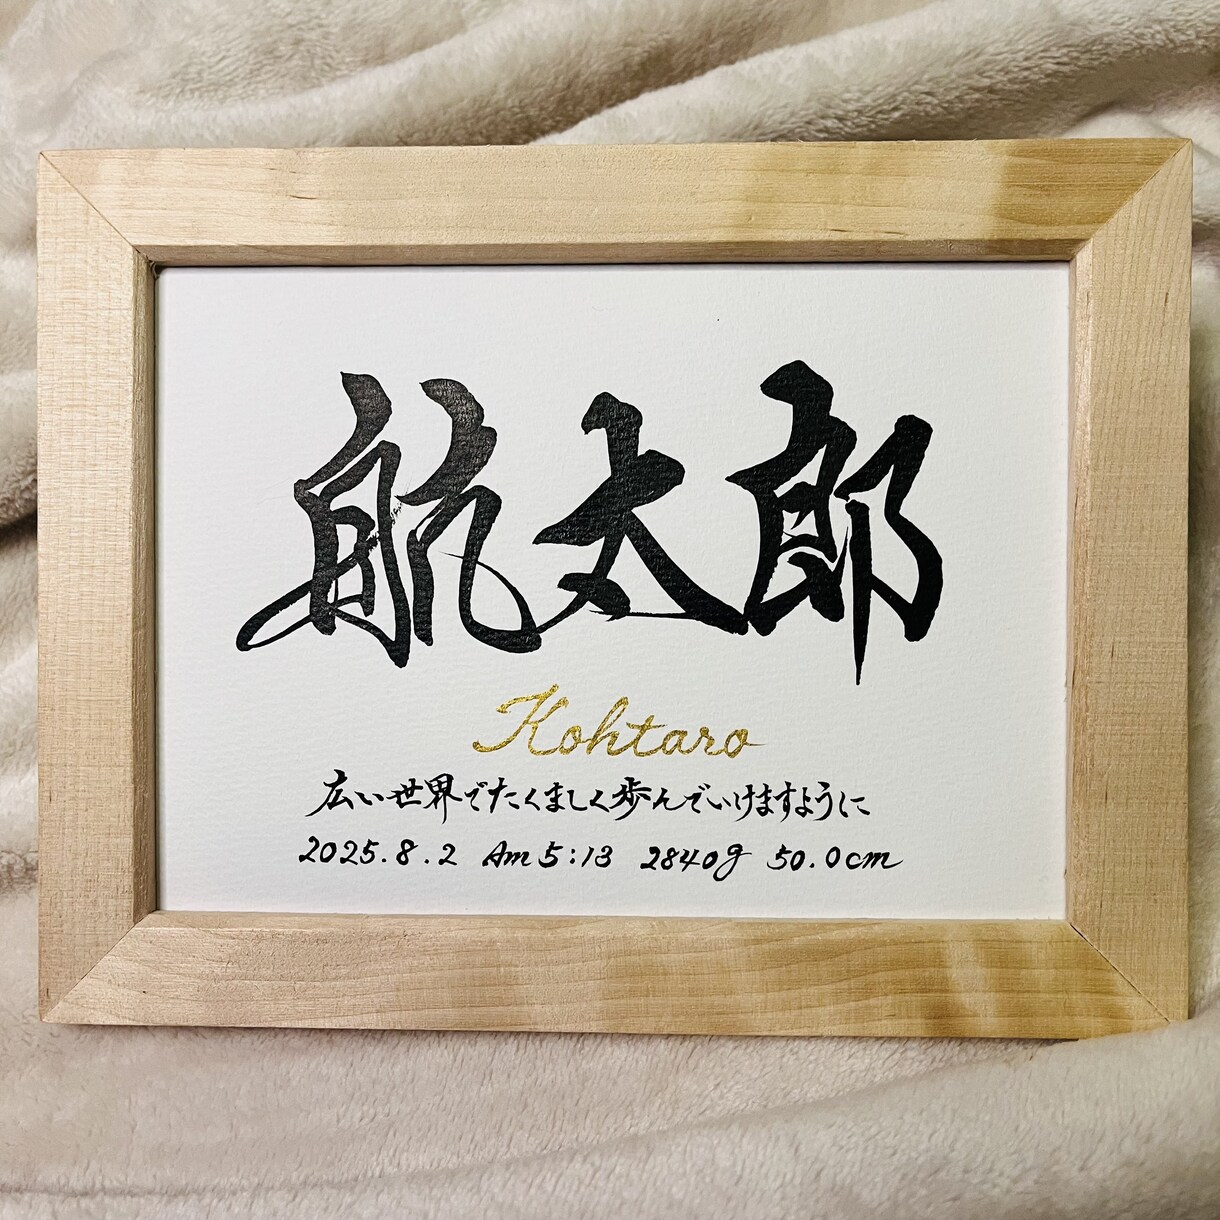 航太郎
Kohtaro
広い世界でたくましく歩んでいけますように
2025.8.2 Am 5:13 2840g 50.0cm